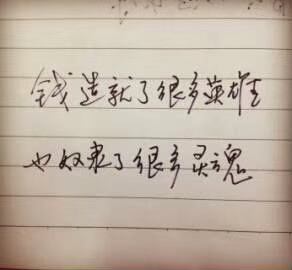 钱造就了很多英雄
也奴隶了很多灵魂